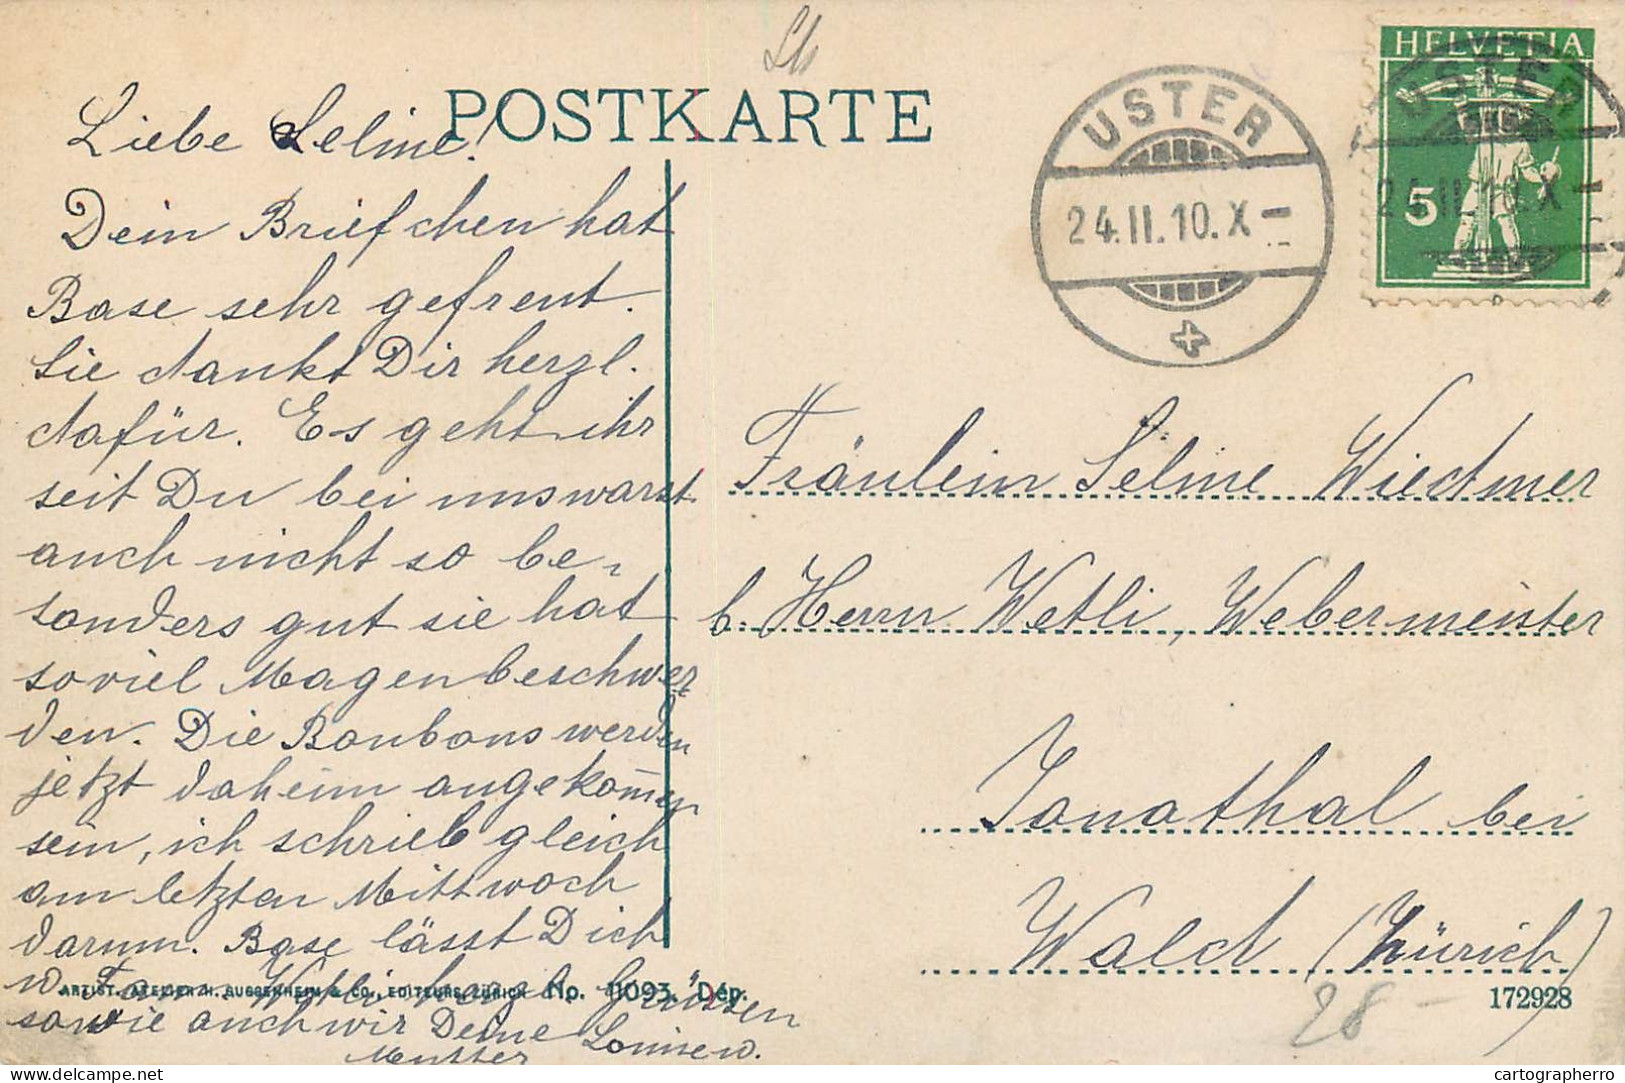 POSTKARTE
Liebe Seline!
Dein Briefchen hat
Base sehr gefreut.
Sie dankt Dir herzl.
dafür. Es geht ihr
seit Du bei uns warst
auch nicht so be-
sonders gut sie hat
soviel Magenbeschwer
den. Die Bonbons werden
jetzt daheim angekom̄en
sein, ich schrieb gleich
am letzten Mittwoch
darum. Base lässt Dich
u. Fam. Wetli herzl. grüssen
sowie auch wir Deine
Mutter
USTER
24.II.10.X-
HELVETIA
5
USTER
24.II.10.X-
Fräulein Seline Wiedmer
b. Herrn Wetli, Webermeister
Jonathal bei
Wald (Zürich)
ARTIST. ATELIER H. GUGGENHEIM & CO., EDITEURS, ZÜRICH No. 11093. Dép.
172928
28 -
cartographerro
delcampe.net